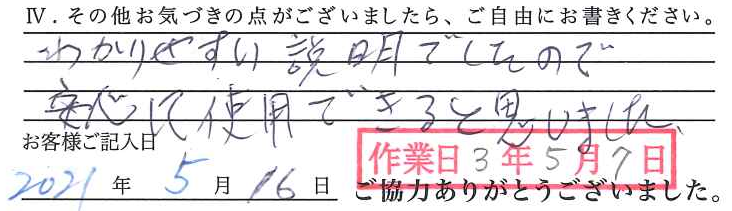 Ⅳ．その他お気づきの点がございましたら、ご自由にお書きください。
わかりやすい説明でしたので
安心して使用できると思いました、
お客様ご記入日
作業日 3 年 5 月 7 日
2021 年 5 月 16 日 ご協力ありがとうございました。